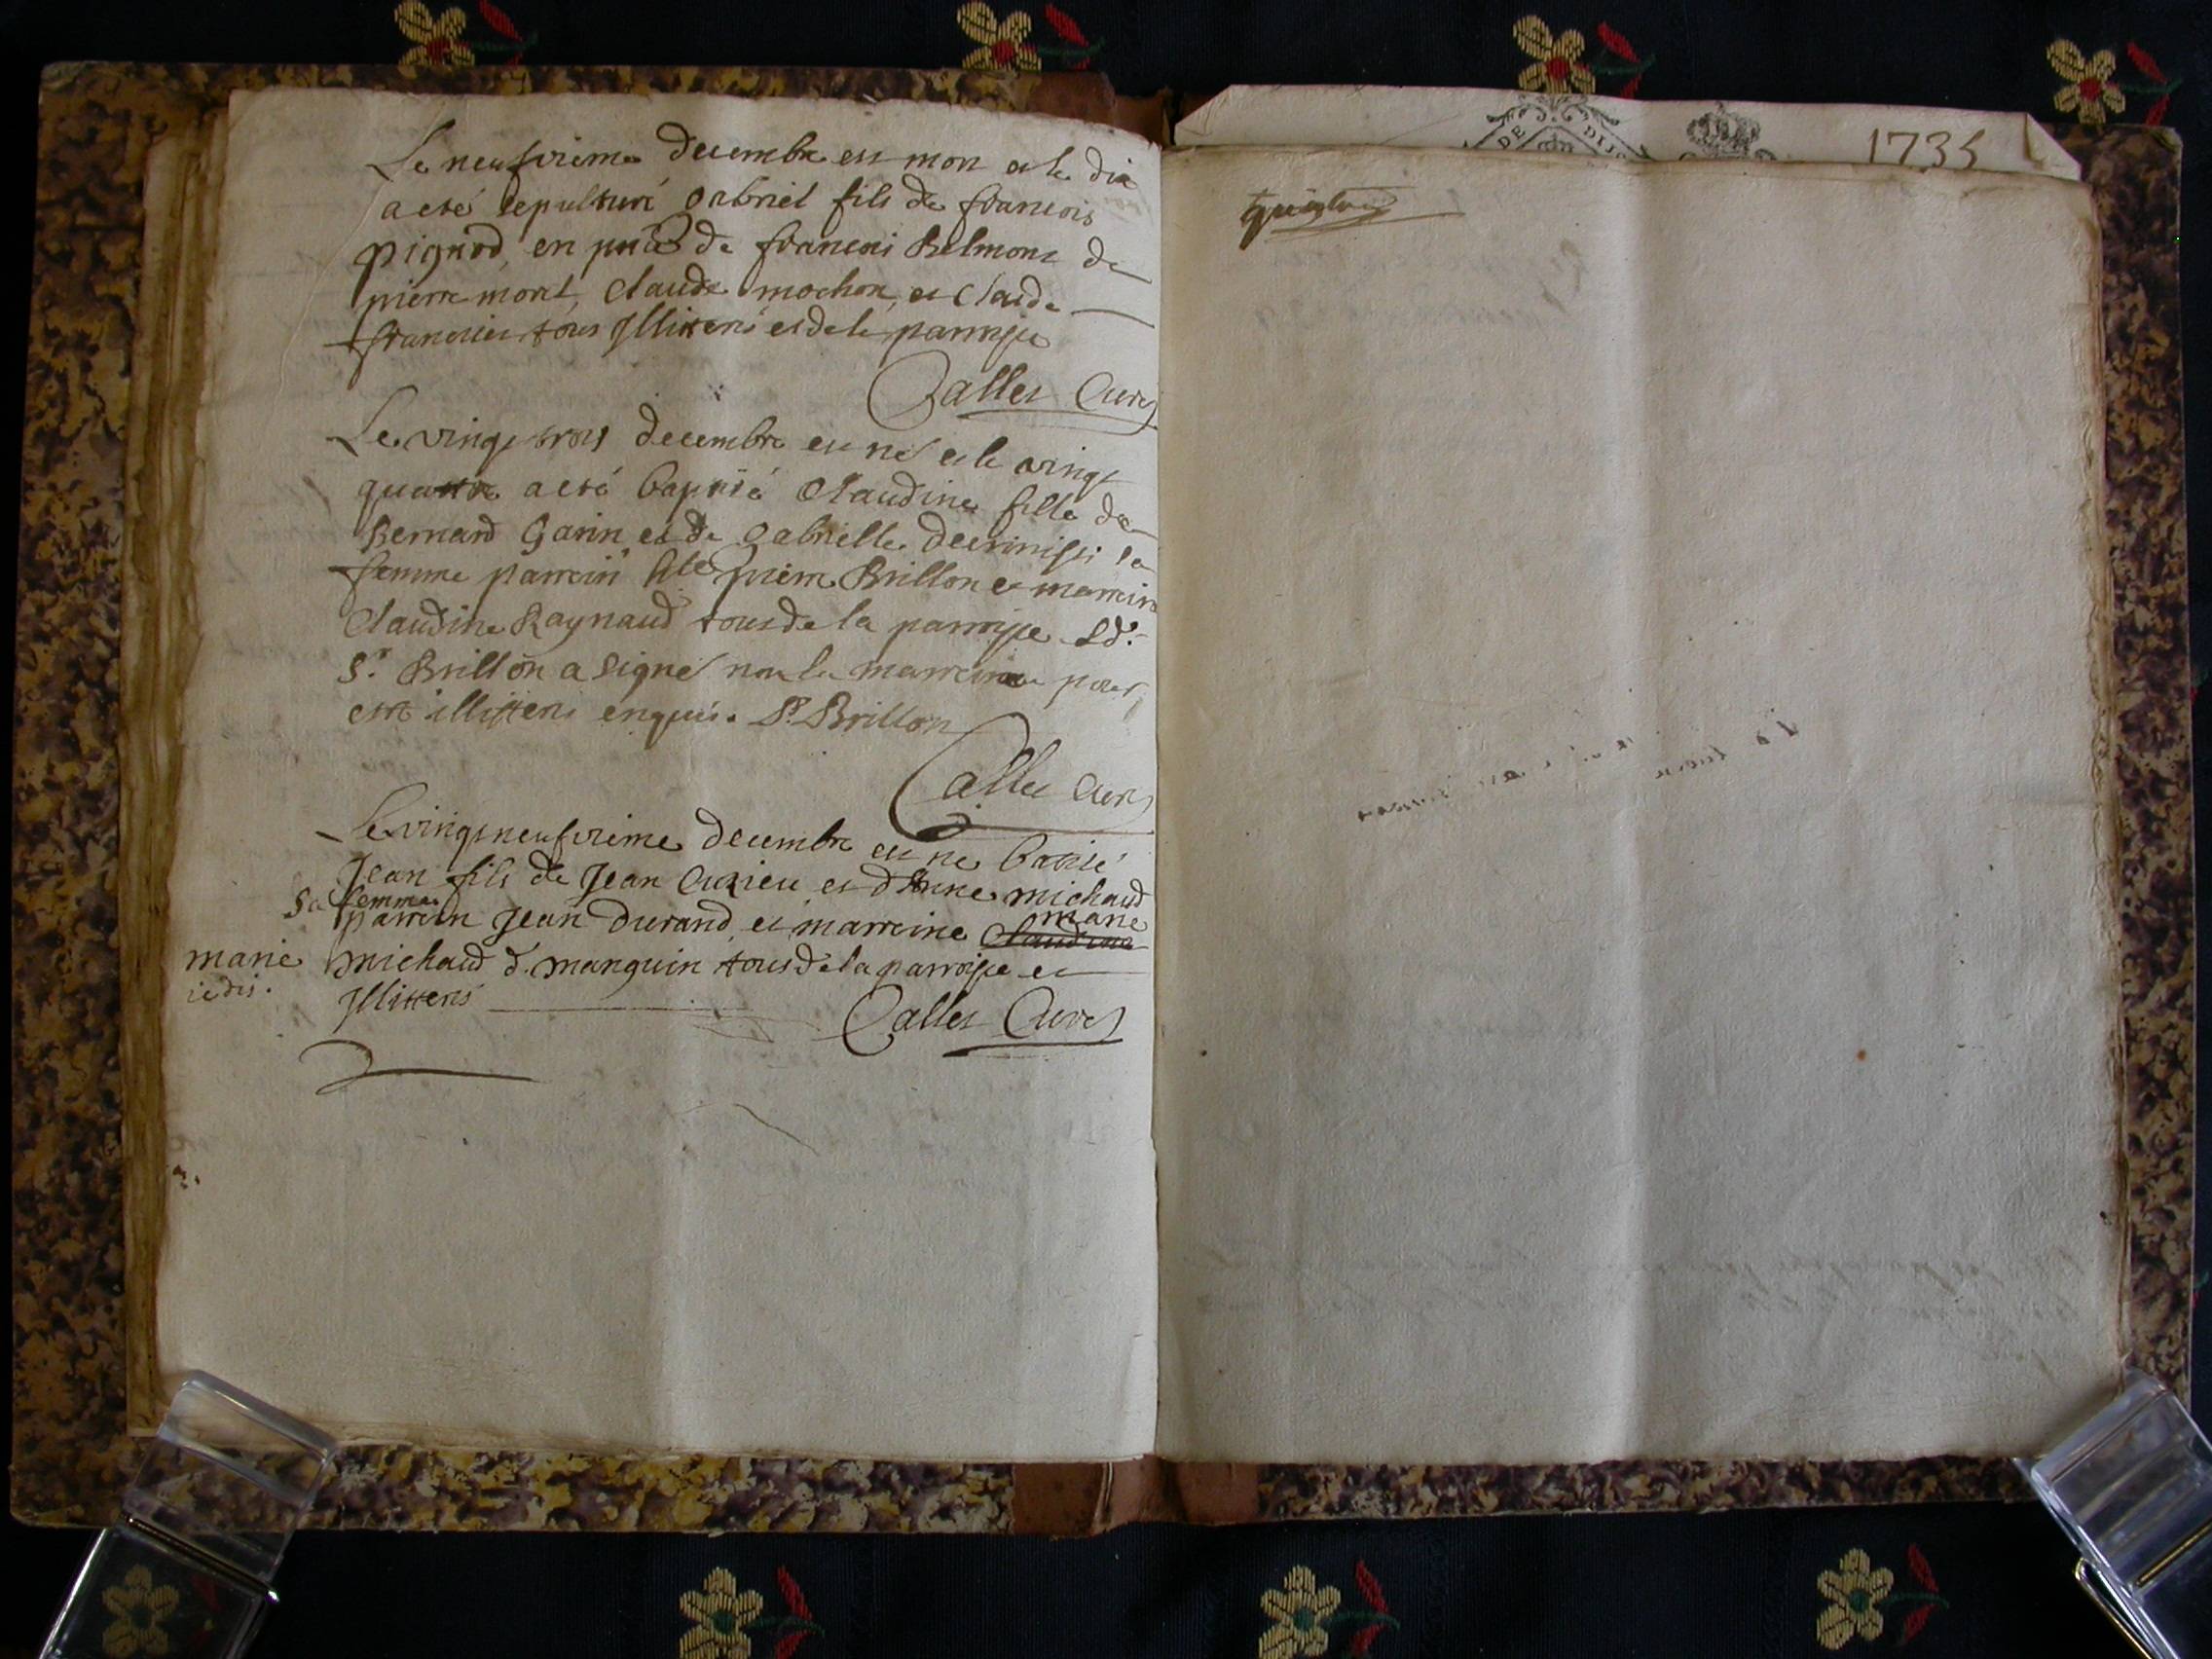 Le neufvieme decembre est mort et le dix
a eté sepulturé gabriel fils de francois
pignod, en pnce de francois Belmont de
pierre morel, Claude mochon, et Claude
francois tous Illitteré et de la parroisse
Calles Curé
Le vingt trois decembre est né et le vingt
quattre a eté baptisé Claudine fille de
Bernard Garin et de gabrielle sa
femme parrein pierre Brillon et marreine
Claudine Raynaud tous de la parroisse Ld.
Sr. Brillon a signé non la marreine pour
estre illitteré enquis. P. Brillon
Calles Curé
Le vingt neufvieme decembre est né batisé
Jean fils de Jean Cuzieu et d'Anne michaud
sa femme
parrein Jean Durand, et marreine Claudine marie
michaud d. manguin tous de la parroisse et
Illitteré
marie
ie dis.
Calles Curé
DE DIJO
1735